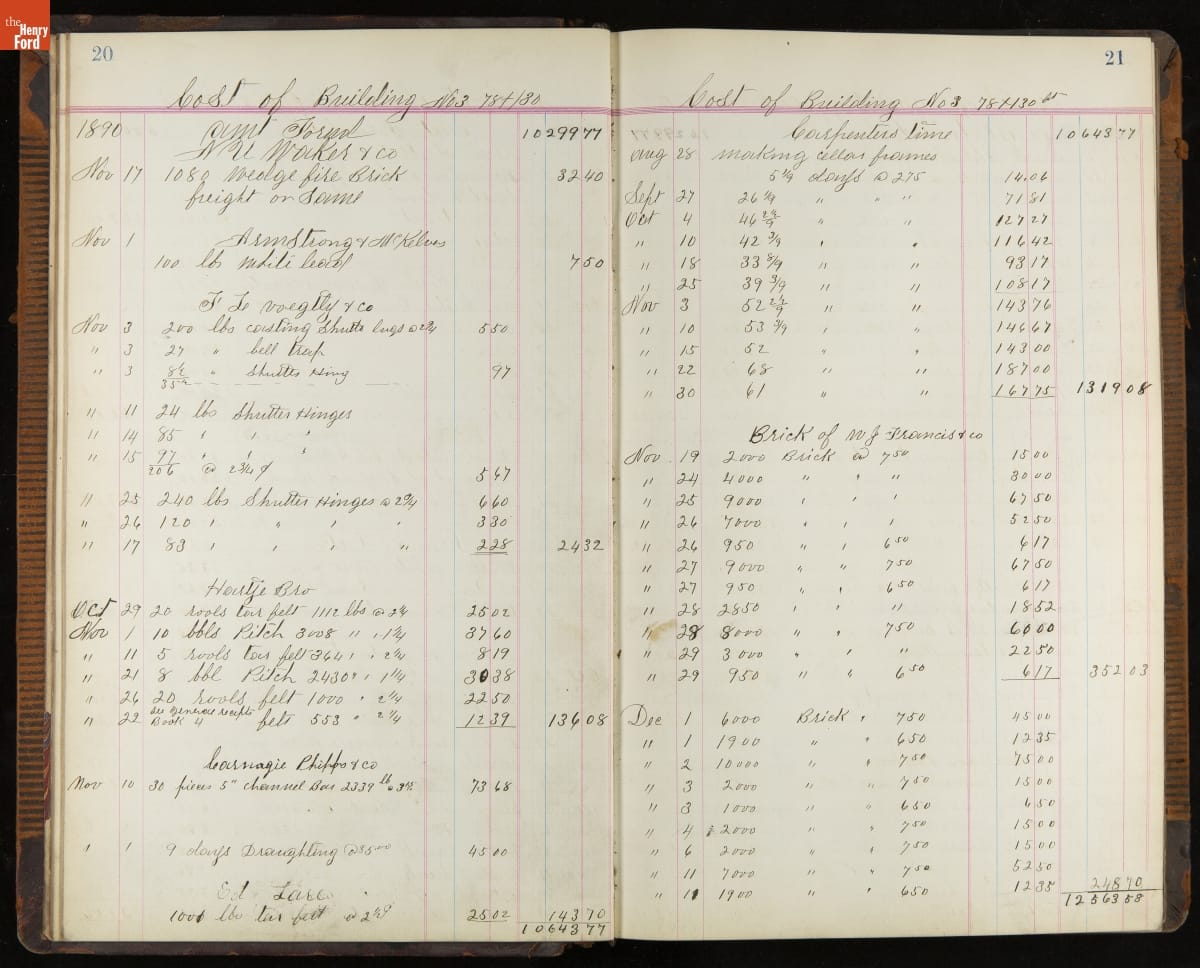 the Henry Ford
20
Cost of Building No 3 78 x 130
1890 amt Forwd 10299 77
Nov 17 1080 Wedge fire Brick 32 40
freight on Same
Nov 1 Armstrong & McKelvy
100 lbs White lead 7 50
& co
Nov 3 200 lbs casting Shutter lugs @ 2 3/4 5 50
" 3 27 " bell trap
" 3 8 1/2 " Shutter Hing 97
35 1/2
" 11 24 lbs Shutter Hinges
" 14 85 " " "
" 15 97 " " "
206 @ 2 3/4 ¢ 5 67
" 25 240 lbs Shutter Hinges @ 2 3/4 6 60
" 26 120 " " " " 3 30
" 17 83 " " " " 2 28 24 32
Hartje Bro
Oct 29 20 rools tar felt 1112 lbs @ 2 1/4 25 02
Nov 1 10 bbls Pitch 3008 " " 1 1/4 37 60
" 11 5 rools tar felt 364 " " 2 1/4 8 19
" 21 8 bbl Pitch 2430 " " 1 1/4 30 38
" 26 20 rools felt 1000 " 2 1/4 22 50
see General receipts
" 22 Book 4 felt 553 " 2 1/4 12 39 136 08
Carnagie Phipps & co
Nov 10 30 pieces 5" Channel Bar 2339 lb 73 68
" 1 9 days Draughting @ 5 00 45 00
Ed
1000 lbs tar felt @ 25 02 143 70
10643 77
21
Cost of Building No 3 78 x 130 ft
Carpenters time 10643 77
Aug 28 making cellar frames
5 1/9 days @ 2 75 14 06
Sept 27 26 1/9 " " " 71 81
Oct 4 46 " " 127 27
" 10 42 3/9 " " 116 42
" 18 33 8/9 " " 93 17
" 25 39 3/9 " " 108 17
Nov 3 52 " " 143 76
" 10 53 3/9 " " 146 67
" 15 52 " " 143 00
" 22 68 " " 187 00
" 30 61 " " 167 75 1319 08
Brick of W J Francis & co
Nov 19 2000 Brick @ 7 50 15 00
" 24 4000 " " " 30 00
" 25 9000 " " " 67 50
" 26 7000 " " " 52 50
" 26 950 " " 6 50 6 17
" 27 9000 " " 7 50 67 50
" 27 950 " " 6 50 6 17
" 28 2850 " " " 18 52
" 28 8000 " " 7 50 60 00
" 29 3000 " " " 22 50
" 29 950 " " 6 50 6 17 352 03
Dec 1 6000 Brick " 7 50 45 00
" 1 1900 " " 6 50 12 35
" 2 10000 " " 7 50 75 00
" 3 2000 " " 7 50 15 00
" 3 1000 " " 6 50 6 50
" 4 2000 " " 7 50 15 00
" 6 2000 " " 7 50 15 00
" 11 7000 " " 7 50 52 50
" 11 1900 " " 6 50 12 35 248 70
12563 58